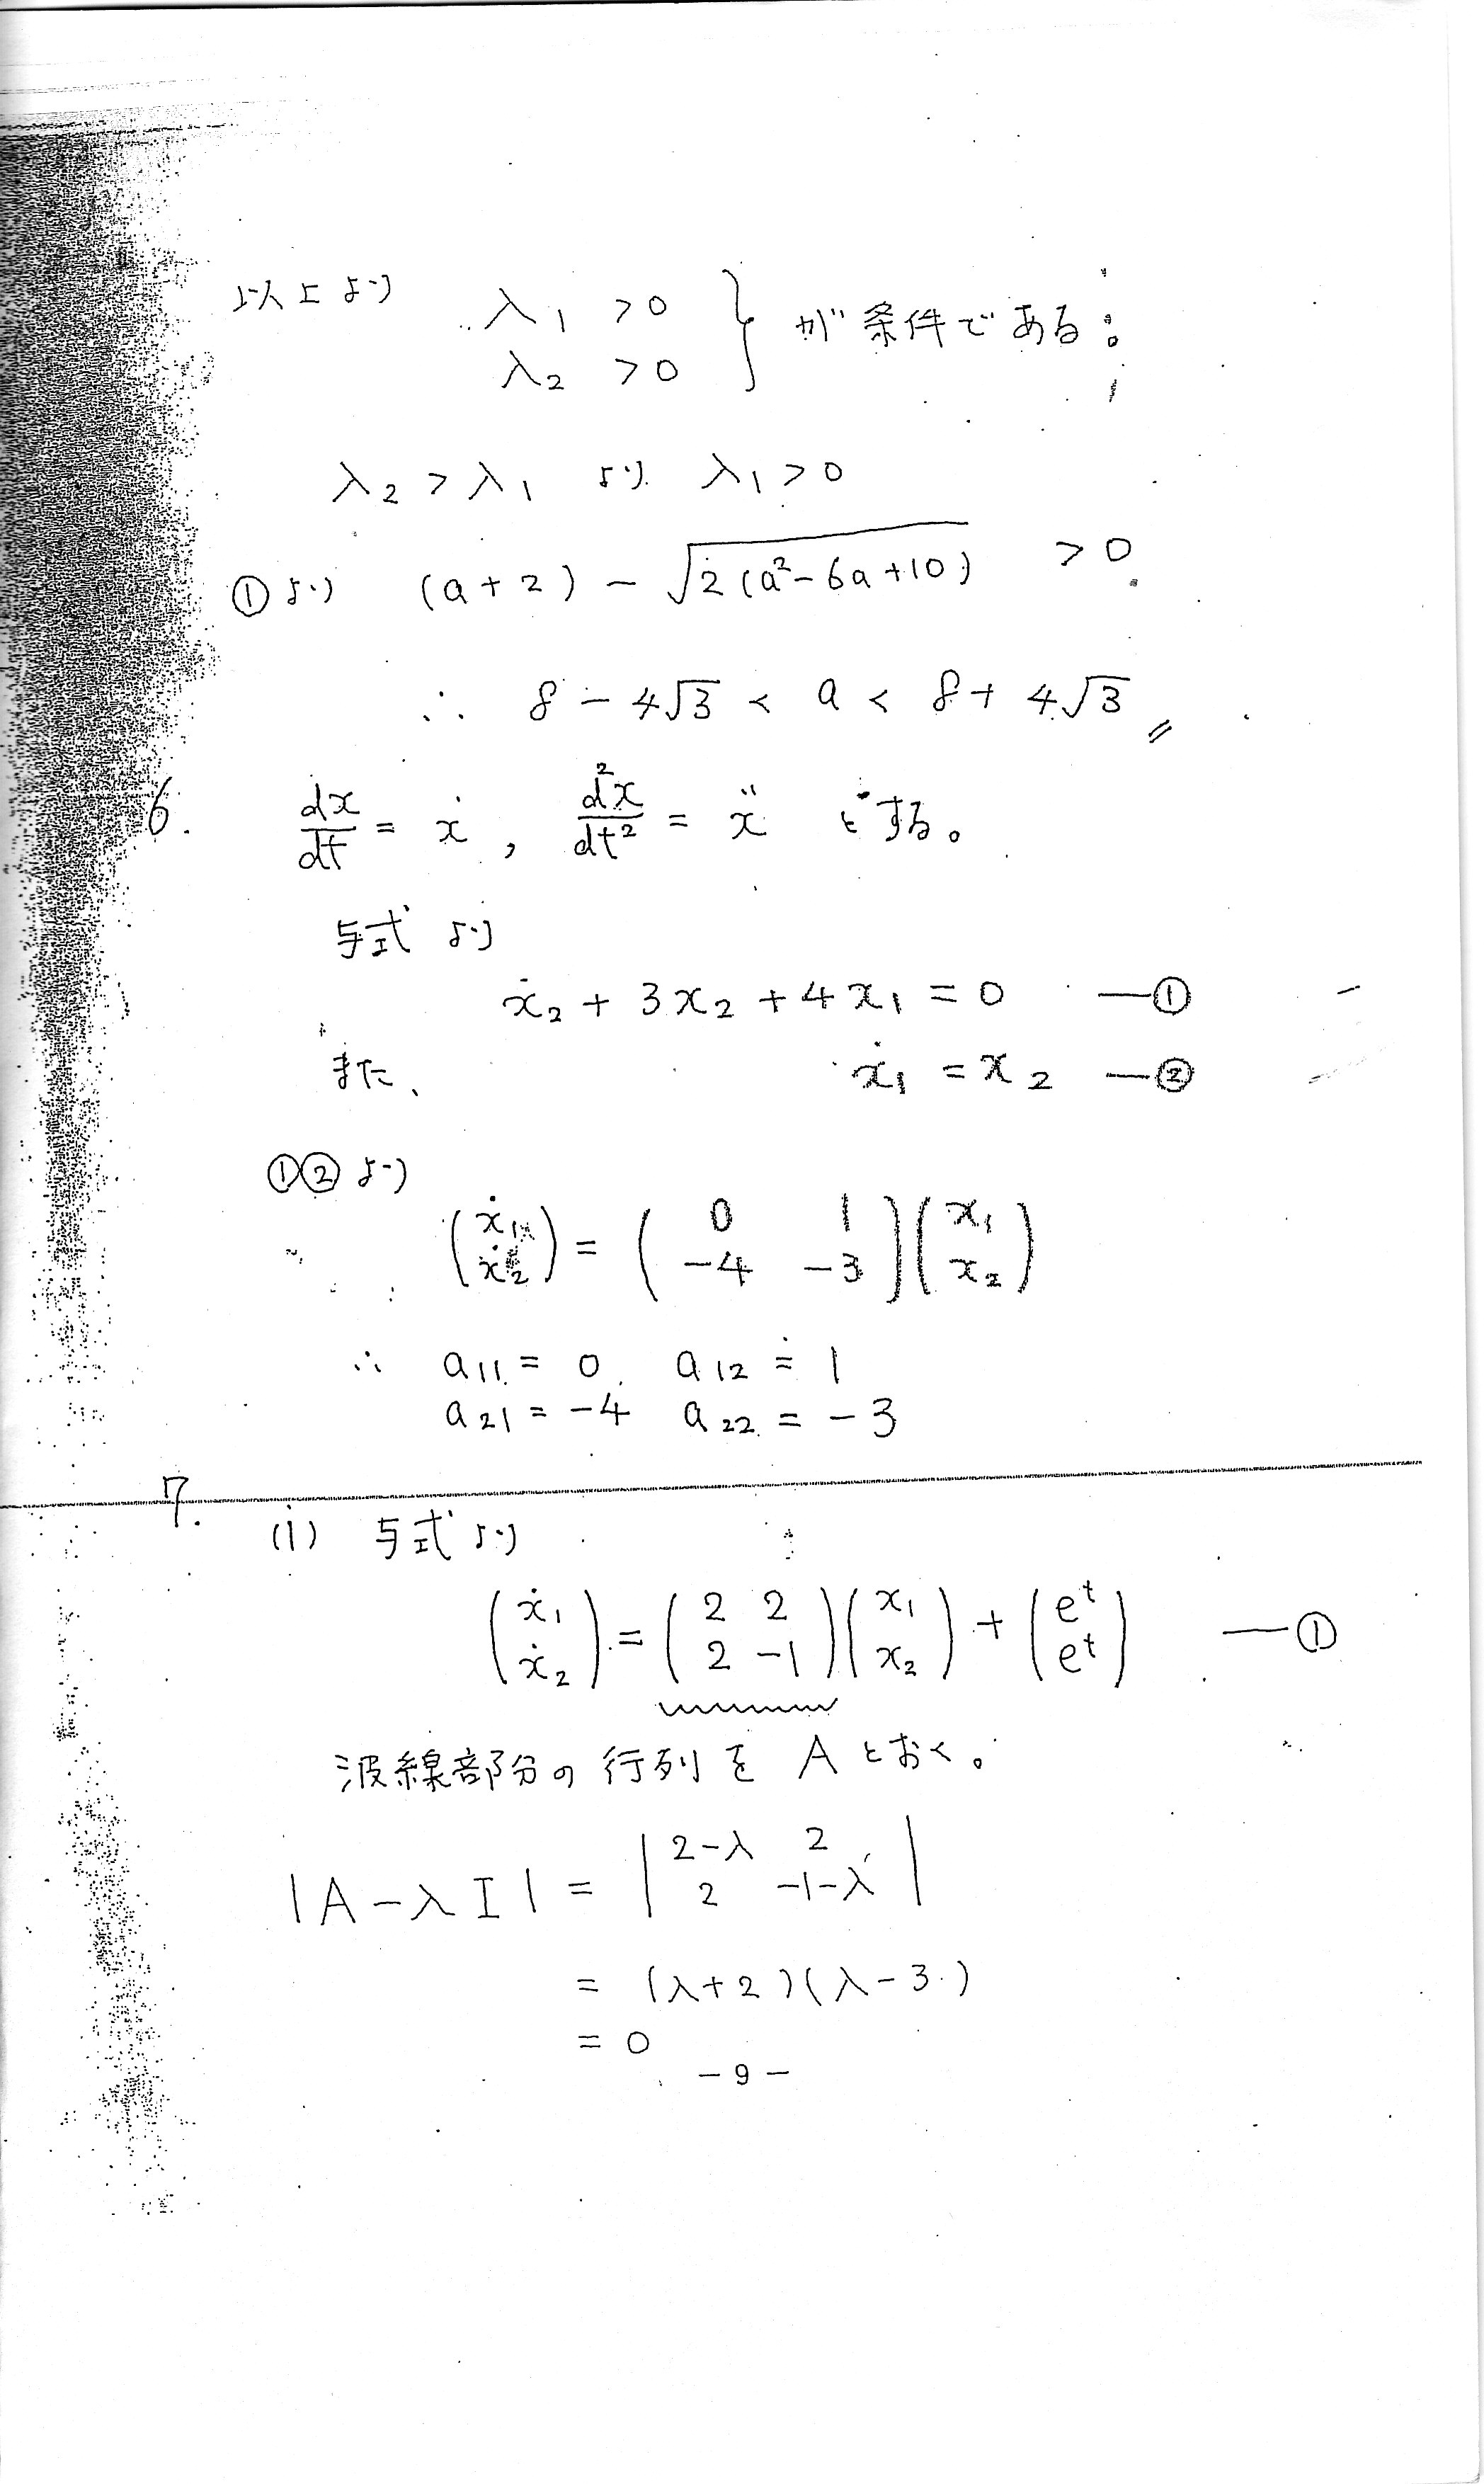 以上より λ₁ > 0
λ₂ > 0 } が条件である。
λ₂ > λ₁ より λ₁ > 0
①より (a+2) - √(2(a²-6a+10)) > 0
∴ 8 - 4√3 < a < 8 + 4√3
6. dx/dt = ẋ , d²x/dt² = ẍ とする。
与式より
ẋ₂ + 3x₂ + 4x₁ = 0 —①
また、 ẋ₁ = x₂ —②
①②より
(ẋ₁
ẋ₂) = (0 1
-4 -3)(x₁
x₂)
∴ a₁₁ = 0, a₁₂ = 1
a₂₁ = -4 a₂₂ = -3
7. (i) 与式より
(ẋ₁
ẋ₂) = (2 2
2 -1)(x₁
x₂) + (eᵗ
eᵗ) —①
波線部分の行列を A とおく。
|A - λI| = |2-λ 2
2 -1-λ|
= (λ+2)(λ-3)
= 0
- 9 -